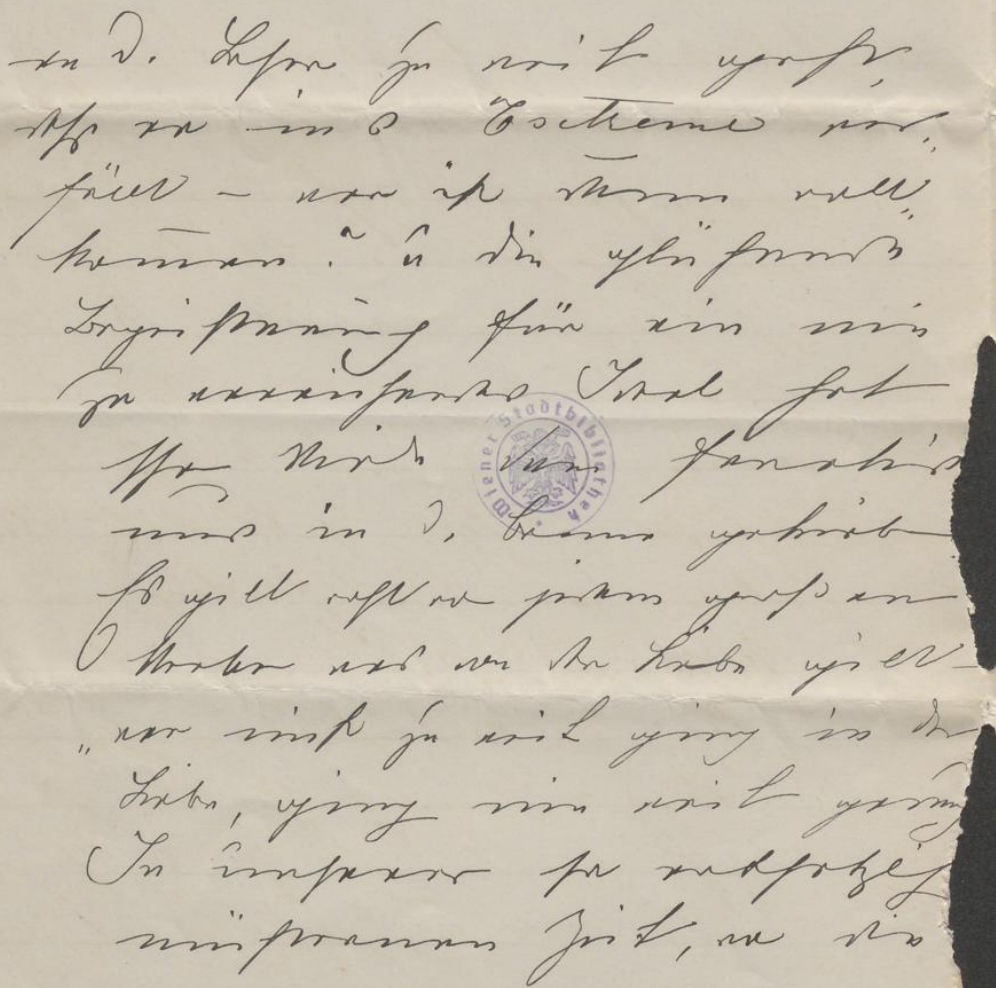 d. Lehre zu weit geht,
daß er ins Extreme ver„
fällt – wer ist denn voll„
kommen? u die glühende
Begeisterung für ein nie
zu erreichendes Ideal hat
schon Viele dem Fanatis
mus in d. Arme getrieb
Es gilt von jedem großen
Streben was von der Liebe gilt –
„wer nicht zu weit ging in der
Liebe, ging nie weit genug
In unserer so entsetzlich
nüchternen Zeit, wo die
Wiener Stadtbibliothek